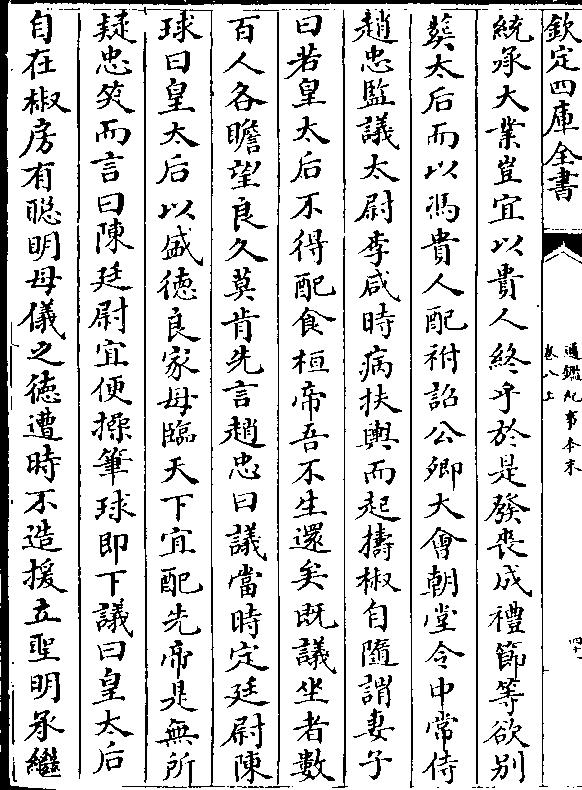 欽定四庫全書
通鑑紀事本末
卷八上
四十
統承大業豈宜以貴人終乎於是發喪成禮節等欲别
葬太后而以馮貴人配祔詔公卿大會朝堂令中常侍
趙忠監議太尉李咸時病扶輿而起擣椒自隨謂妻子
曰若皇太后不得配食桓帝吾不生還矣既議坐者數
百人各瞻望良久莫肯先言趙忠曰議當時定廷尉陳
球曰皇太后以盛徳良家母臨天下宜配先帝是無所
疑忠笑而言曰陳廷尉宜便操筆球即下議曰皇太后
自在椒房有聰明母儀之徳遭時不造援立聖明承繼